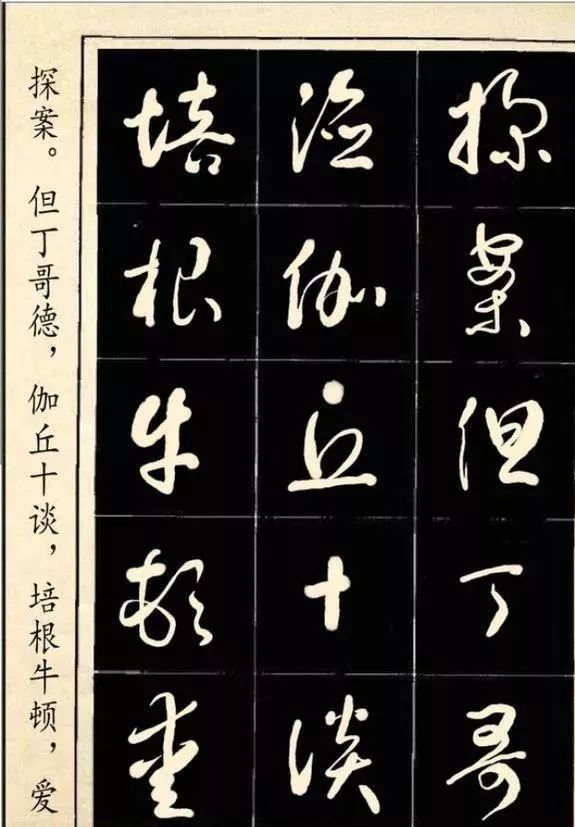 探案但丁哥
德伽丘十谈
培根牛顿爱
探案。但丁哥德，伽丘十谈，培根牛顿，爱